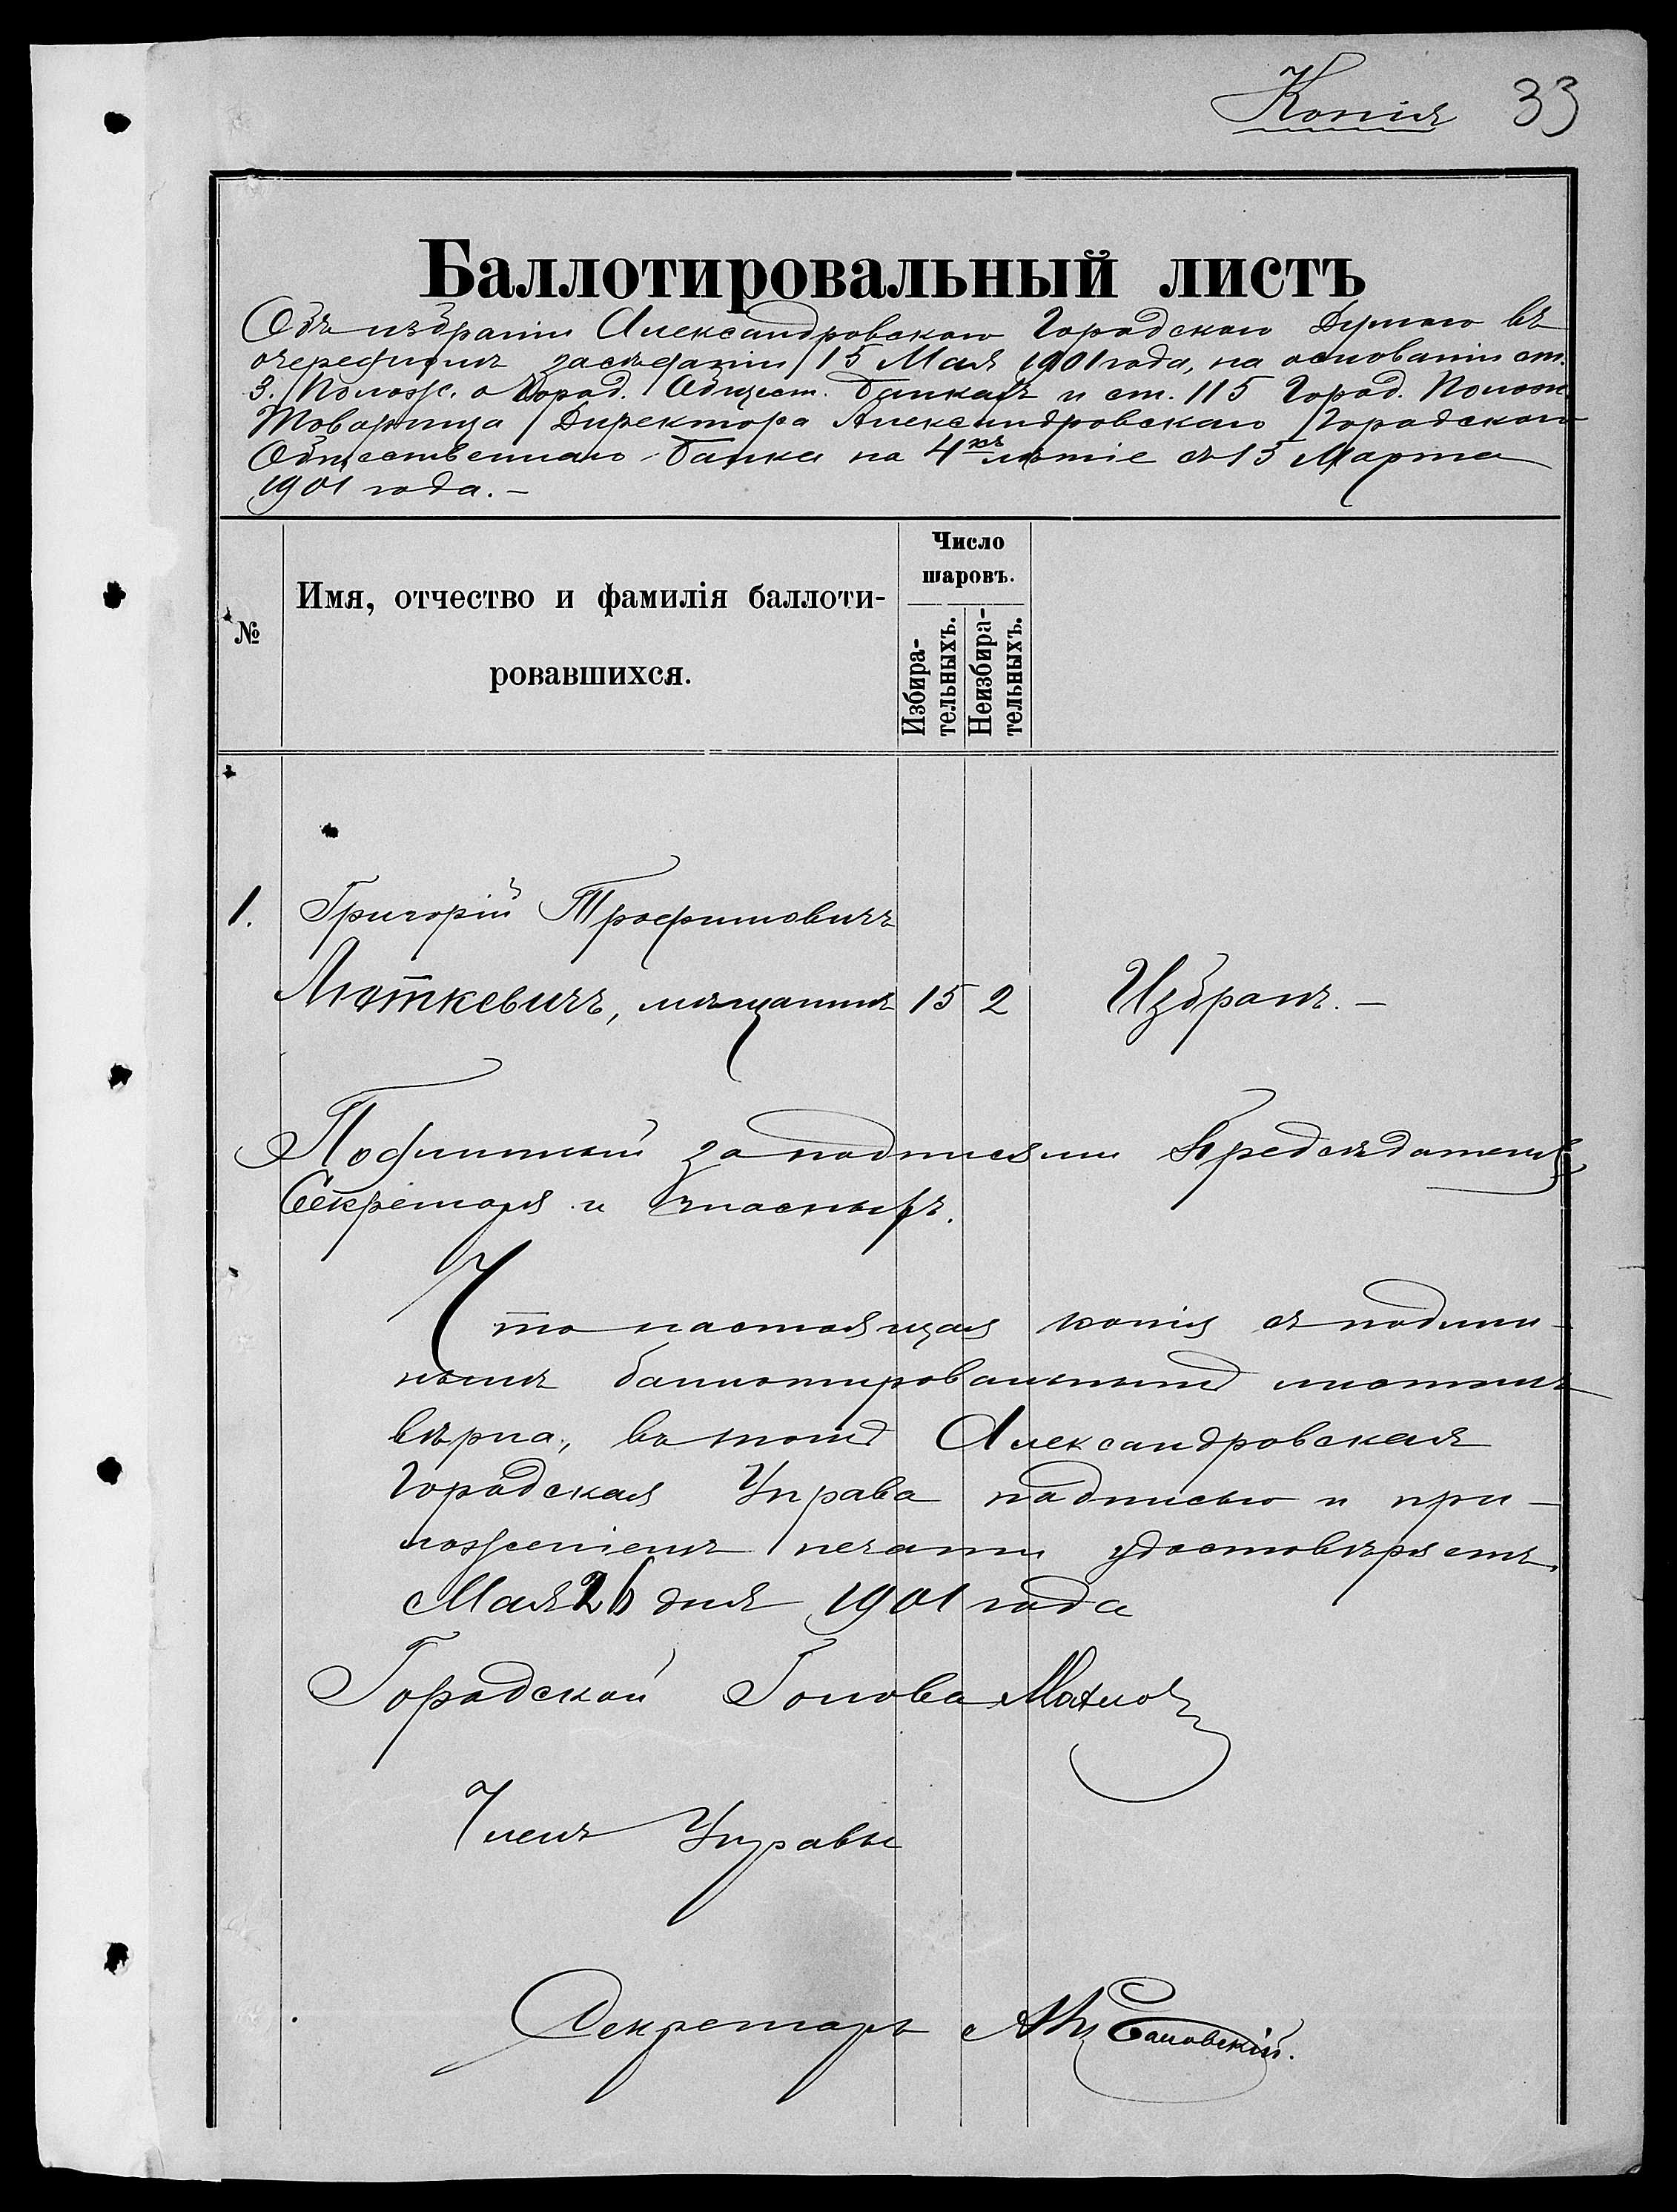 Копія 33
Баллотировальный листъ
Объ избраніи Александровскою Городскою Думою въ
очередномъ засѣданіи 15 Мая 1901 года, на основаніи ст.
3. Полож. о Город. Общест. Банкахъ и ст. 115 Город. Полож.
Товарища Директора Александровскаго Городского
Общественнаго Банка на 4хъ лѣтіе съ 15 Марта
1901 года.—
№
Имя, отчество и фамилія баллоти-
ровавшихся.
Число
шаровъ.
Избира-
тельныхъ.
Неизбира-
тельныхъ.
1. Григорій Трофимовичъ
Люткевичъ, мѣщанинъ 15 2 Избранъ.—
Подлинный за подписями Предсѣдателя
Секретаря и Гласныхъ.
Что настоящая копія съ подлин-
нымъ баллотировальнымъ листомъ
вѣрна, въ томъ Александровская
Городская Управа надписью и при-
ложеніемъ печати удостовѣряетъ.
Мая 26 дня 1901 года
Городской Голова
Членъ Управы
Секретарь